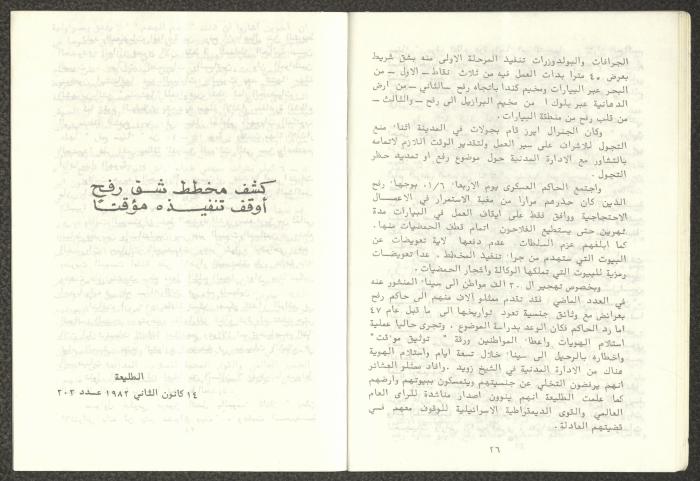 الجرافات والبولدوزرات تنفيذ المرحلة الاولى منه بشق شريط
بعرض ٤٠ مترا بدأت العمل فيه من ثلاث نقاط ــ الاول ــ من
البحر عبر البيارات ومخيم كندا باتجاه رفح ــ الثاني ــ من ارض
الدهانية عبر بلوك ا من مخيم البرازيل الى رفح ــ والثالث ــ
من قلب رفح من منطقة البيارات .
وكان الجنرال ايرز قام بجولات في المدينة اثناء منع
التجول للاشراف على سير العمل ولتقدير الوقت اللازم لاتمامه
بالتشاور مع الادارة المدنية حول موضوع رفع او تمديد حظر
التجول .
واجتمع الحاكم العسكرى يوم الاربعاء ٠١/٦ بوجهاء رفح
الذين كان حذرهم مرارا من مغبة الاستمرار في الاعمـال
الاحتجاجية ووافق فقط على ايقاف العمل في البيارات مدة
شهرين حتى يستطيع الفلاحون اتمام قطف الحمضيات منها .
كما ابلغهم عزم السلطات عدم دفعها لاية تعويضات عن
البيوت التي ستهدم من جراء تنفيذ المخطط . عدا تعويضـات
رمزية للبيوت التي تملكها الوكالة واشجار الحمضيات .
وبخصوص تهجير ال ٢٠ الف مواطن الى سيناء المنشور عنه
في العدد الماضي فقد تقدم ممثلو آلاف منهم الى حاكم رفح
بعرائض مع وثائق جنسية تعود تواريخها الى ما قبل عام ٤٧
اما رد الحاكم فكان الوعد بدراسة الموضوع . وتجرى حاليا عملية
استلام الهويات واعطاء المواطنين ورقة " توثيق موءقت "
واخطاره بالرحيل الى سيناء خلال تسعة ايام واستلام الهوية
هناك من الادارة المدنية في الشيخ زويد . وافاد ممثلو العشائر
انهم يرفضون التخلي عن جنسيتهم ويتمسكون ببيوتهم وارضهم
كما علمت الطليعة انهم ينوون اصدار مناشدة للراى العام
العالمي والقوى الديمقراطية الاسرائيلية للوقوف معهم فـي
قضيتهم العادلة .
٢٦
كشف مخطط شـق رفـح
أوقف تنفيـــذه مؤقتـًا
الطليعة
١٤ كانون الثاني ١٩٨٢ عـدد ٢٠٣